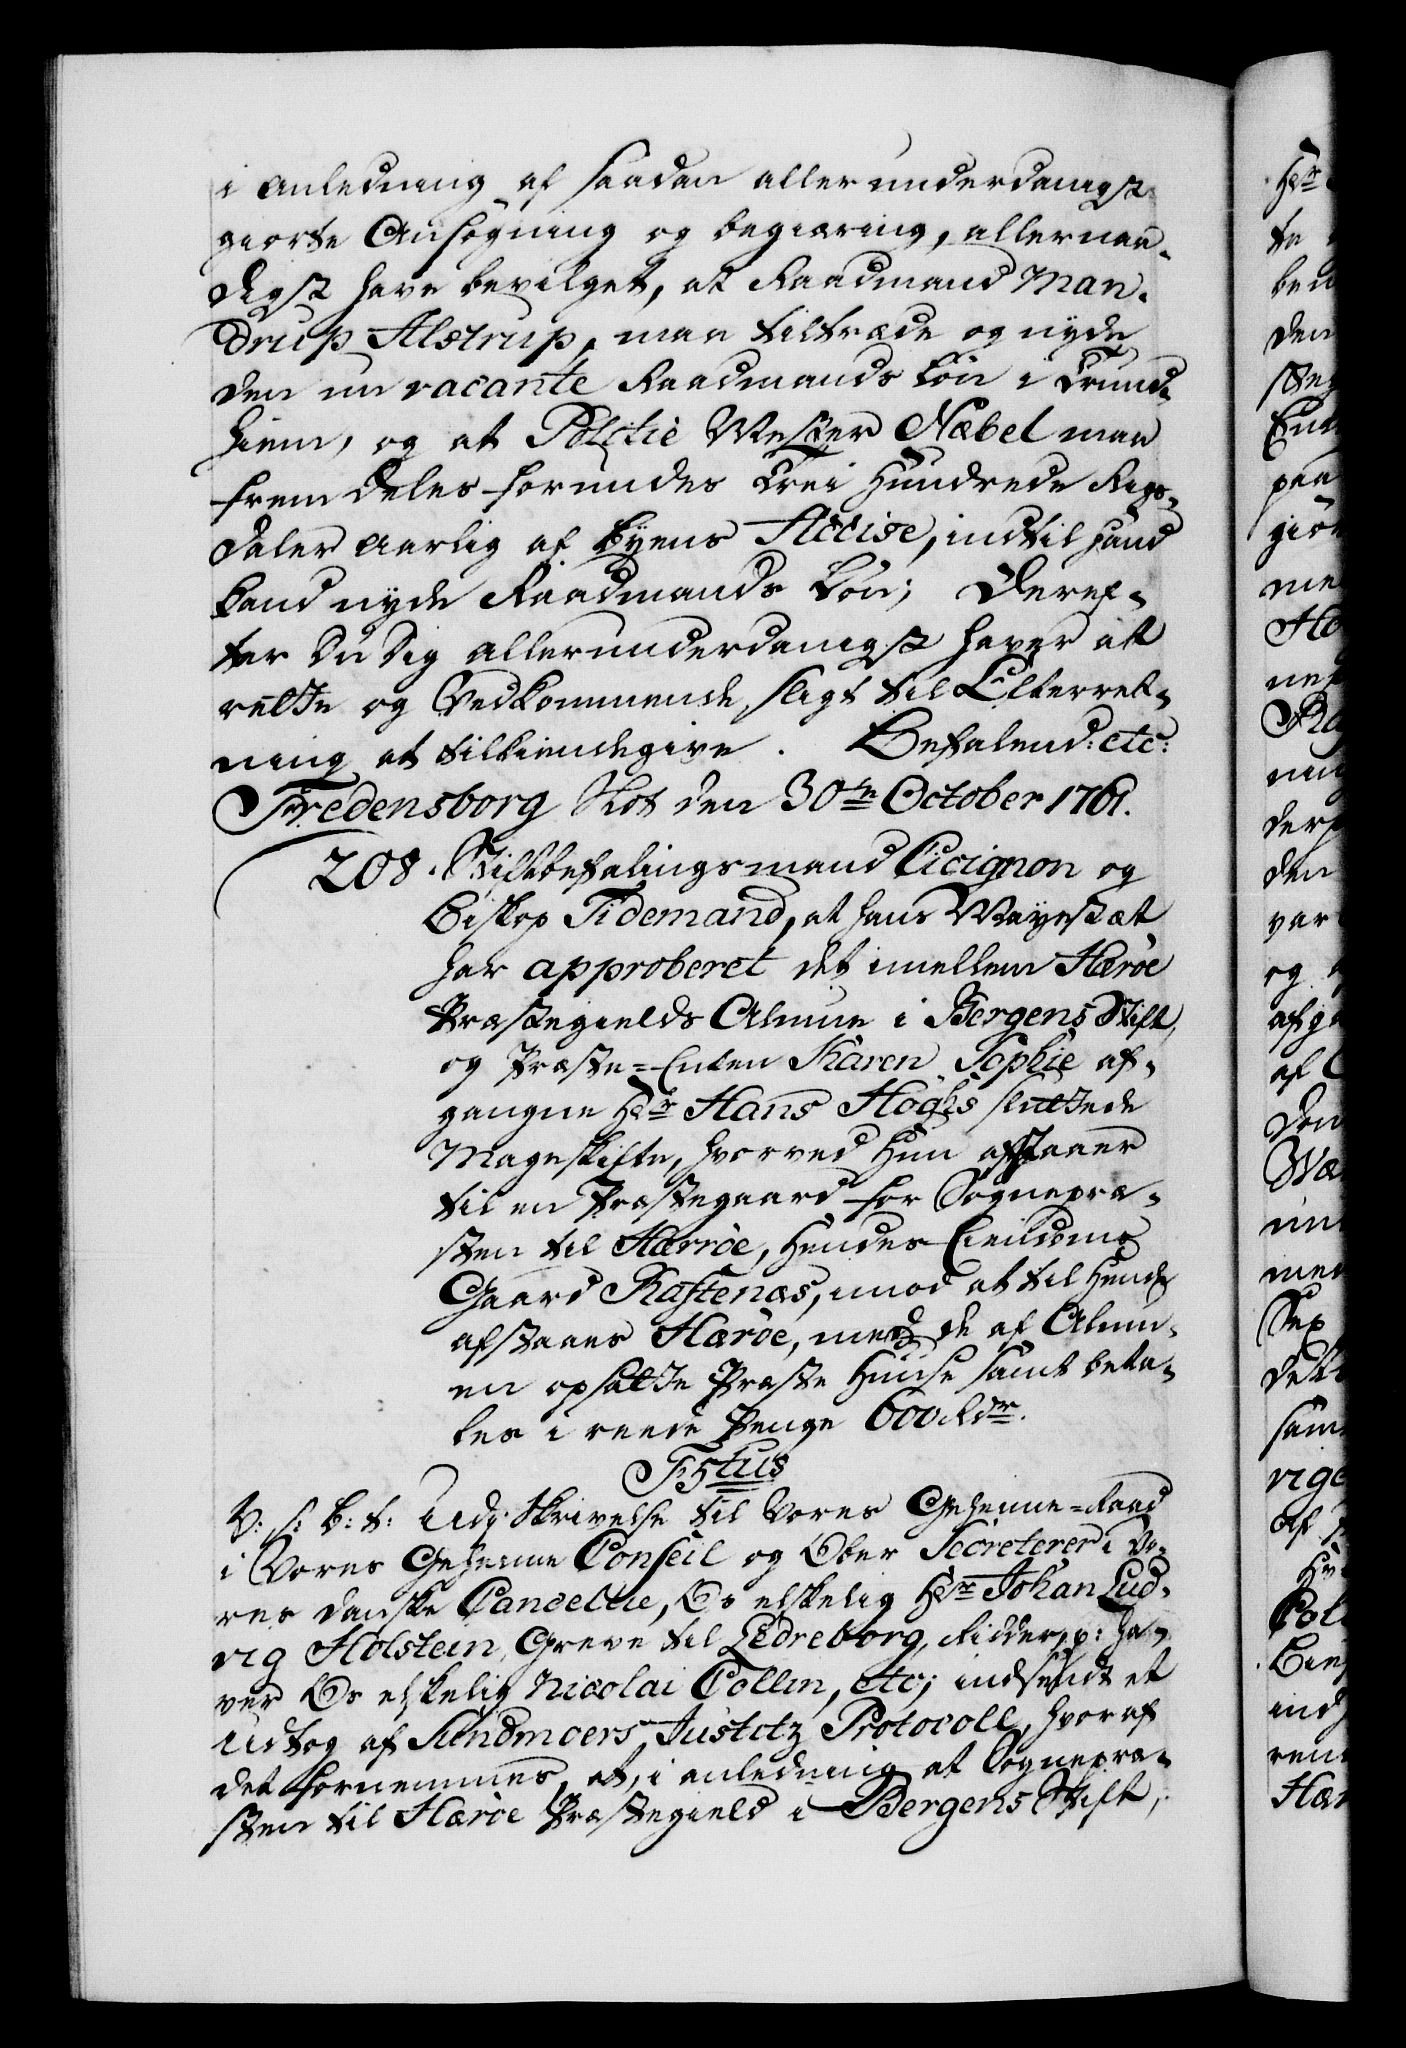 i anledning af saadan allerunderdanigst
giorte Ansøgning og begiæring, allernaa-
digst have bevilget, at Raadmand Man-
drup Alstrup, maa tiltræde og nyde
den nu vacante Raadmands Løn i Trund-
hiem, og at Politie Mester Næbel maa
fremdeles forundes Trei Hundrede Rigs-
daler aarlig af Byens Accise, indtil hand
kand nyde Raadmands Løn; Deref-
ter Du dig allerunderdanigst haver at
rette og Vedkommende sligt til Efterret-
ning at tilkiendegive. Befalend: etc:
Fredensborg Slot den 30te October 1761.
208. Stiftbefalingsmand Cicignon og
Biskop Tidemand, at hans Mayestæt
har approberet det imellem Hærøe
Præstegields Almue i Bergens Stift,
og Præste-Enken Karen Sophie af-
gangne Hr Hans Høghs sluttede
Mageskifte, hvorved Hun afstaaer
til en Præstegaard for Sognepræ-
sten til Hærrøe, Hendes Eiendoms
Gaard Raftenæs, imod at til Hende
afstaaes Hærøe, med de af Almu-
en opsatte Præste Huuse samt beta-
les i reede Penge 600 Rdr.
F5tus
V: s: B: t: Udi Skrivelse til Vores Geheime-Raad
i Vores Geheime Conseil og Ober Secreterer i Vo-
res danske Cancellie, Os elskelig Hr Johan Lud-
vig Holstein, Greve til Ledreborg, Ridder p: ha-
ver Os elskelig Nicolai Collin, etc; indsendt et
Udtog af Sundmoers Justitz Protocoll, hvoraf
det fornemmes, at, i anledning at Sognepræ-
sten til Hærøe Præstegield i Bergens Stift,